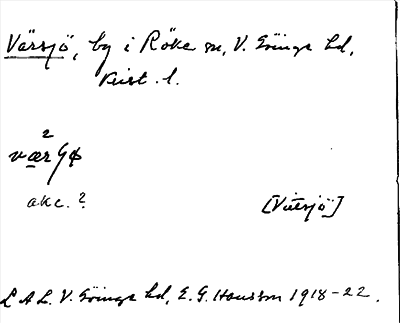 Värsjö, by i Röke sn, V. Göinge hd,
Krist. l.
2
værɧø
akc. ?
[Vitsjö]
L A L. V. Göinge hd, E. G. Hansson 1918-22.